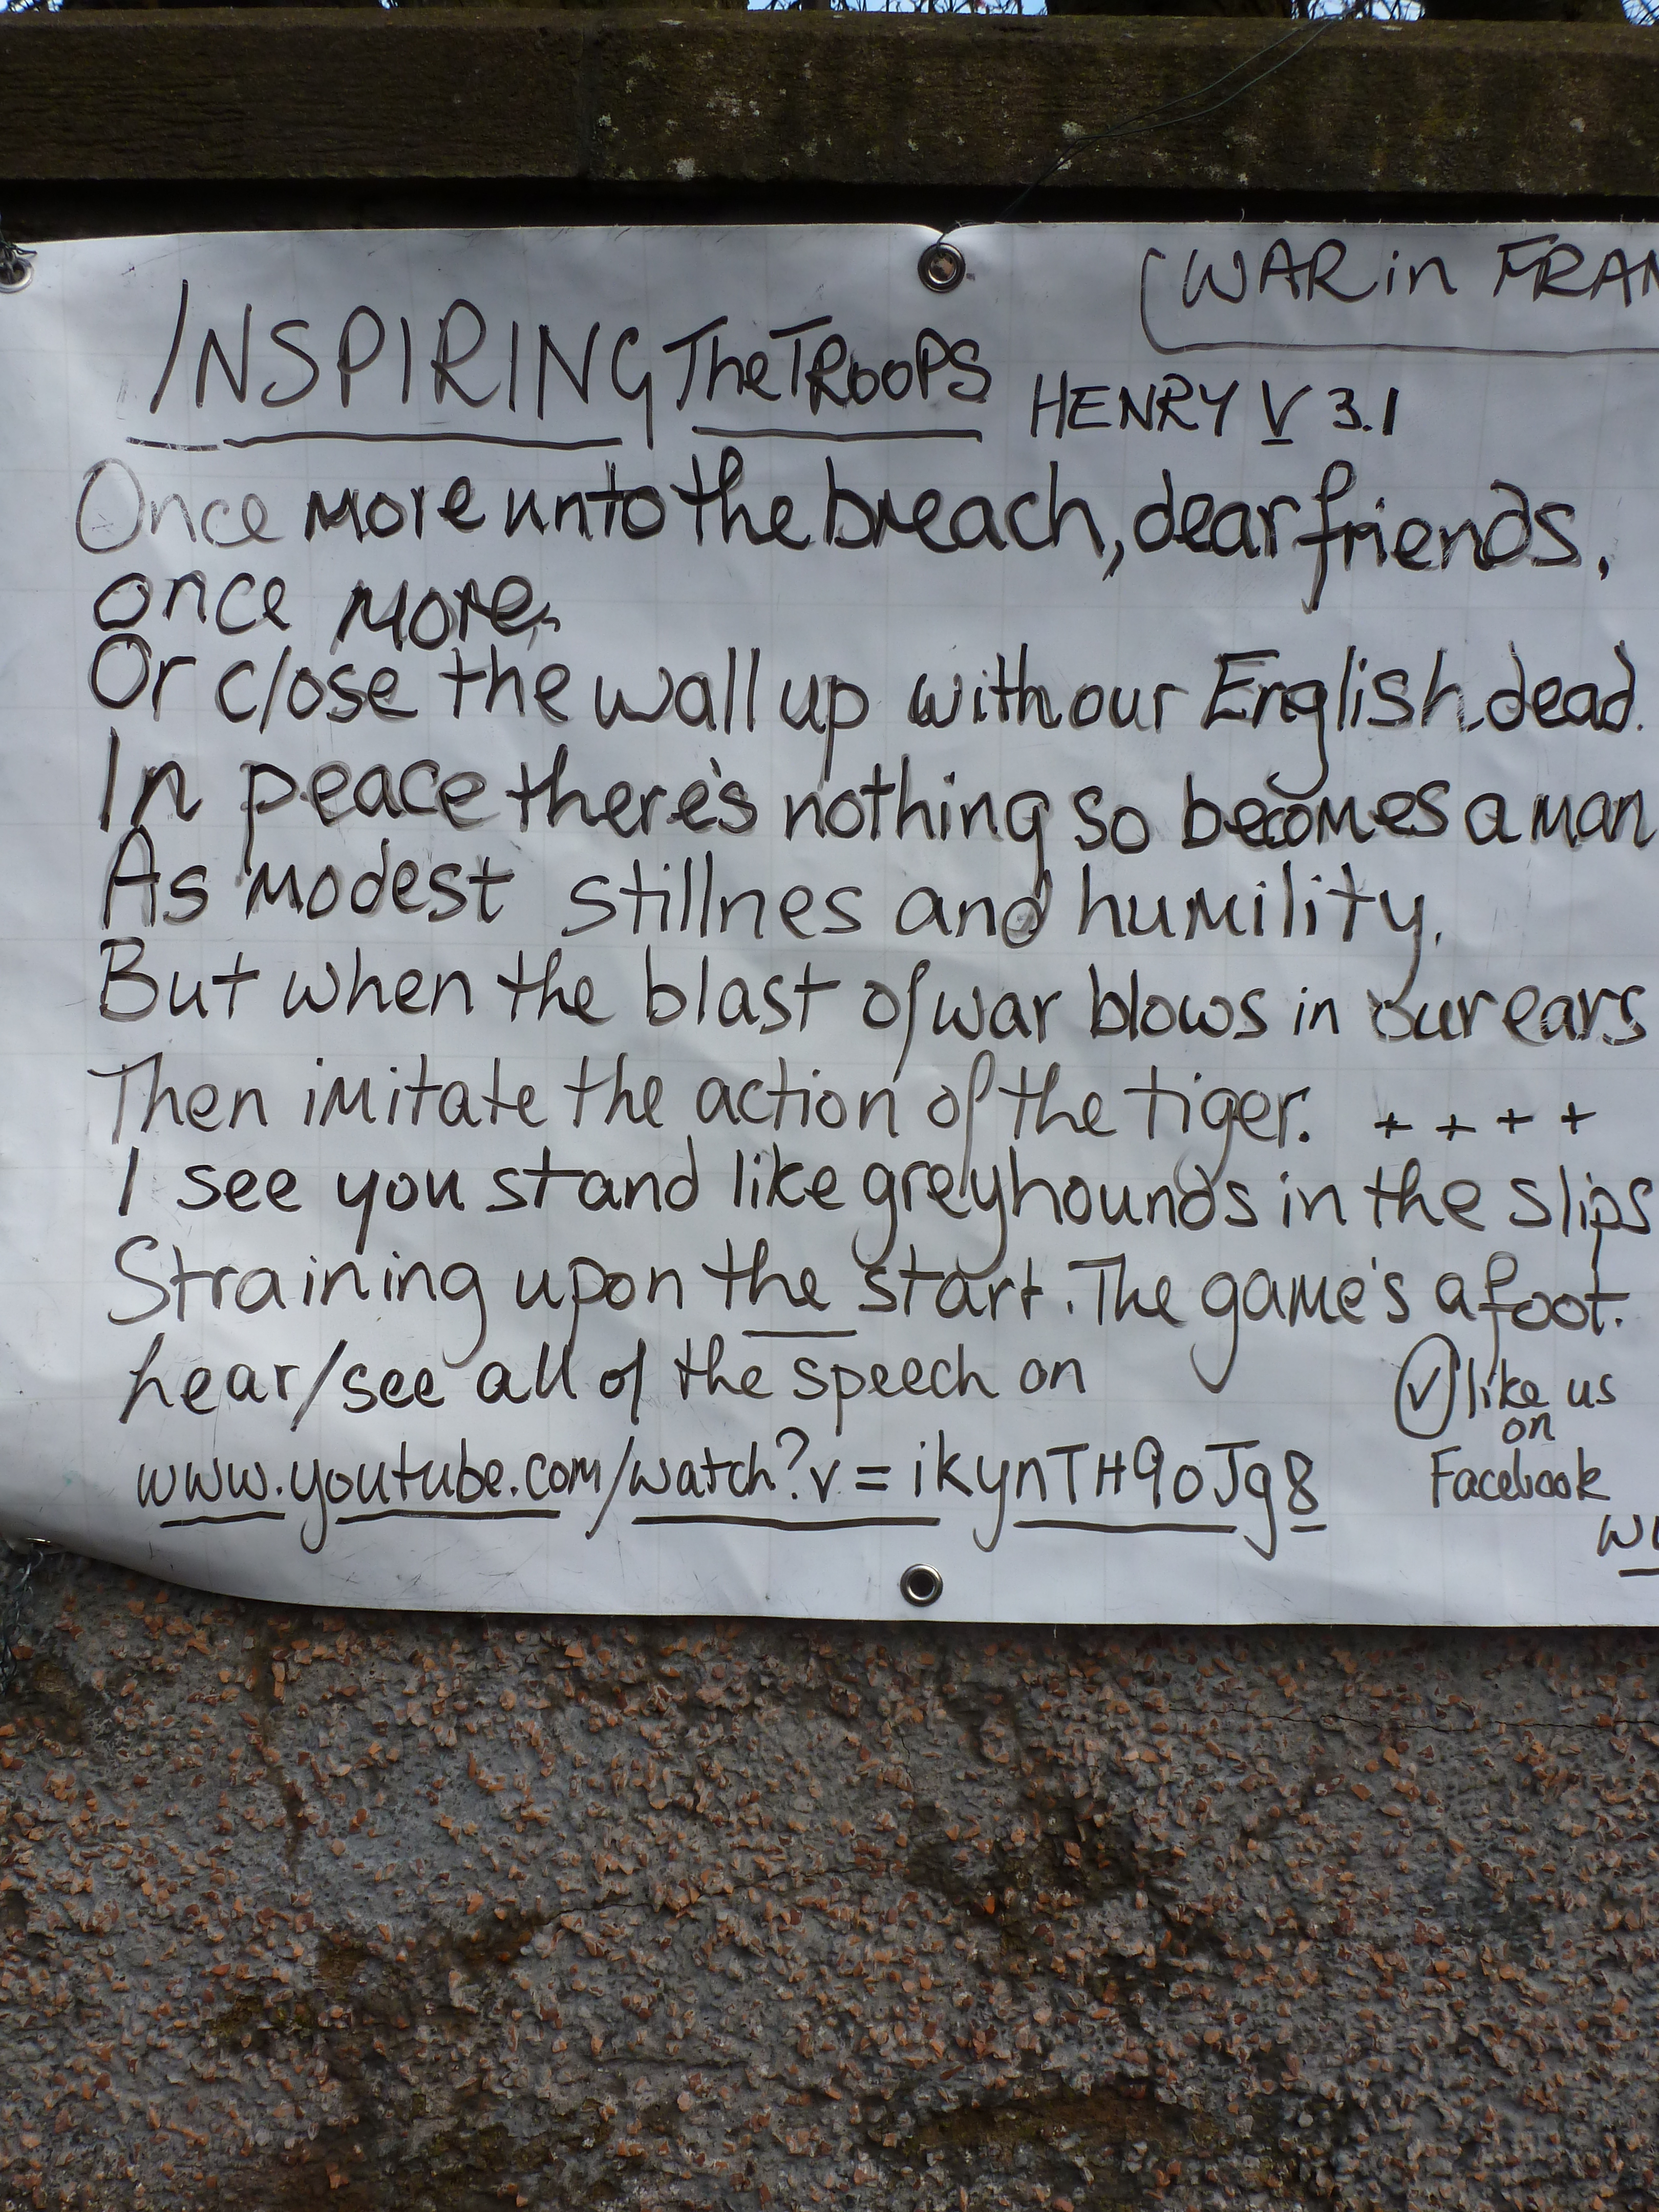 (WAR in FRAN
INSPIRING The TROOPS HENRY V 3.1
Once more unto the breach, dear friends,
once more,
Or close the wall up with our English dead.
In peace there's nothing so becomes a man
As modest stillnes and humility,
But when the blast of war blows in our ears
Then imitate the action of the tiger. + + + +
I see you stand like greyhounds in the slips
Straining upon the start. The game's afoot.
hear/see all of the speech on
www.youtube.com/watch?v=ikynTH9oJg8
✓ like us
on
Facebook